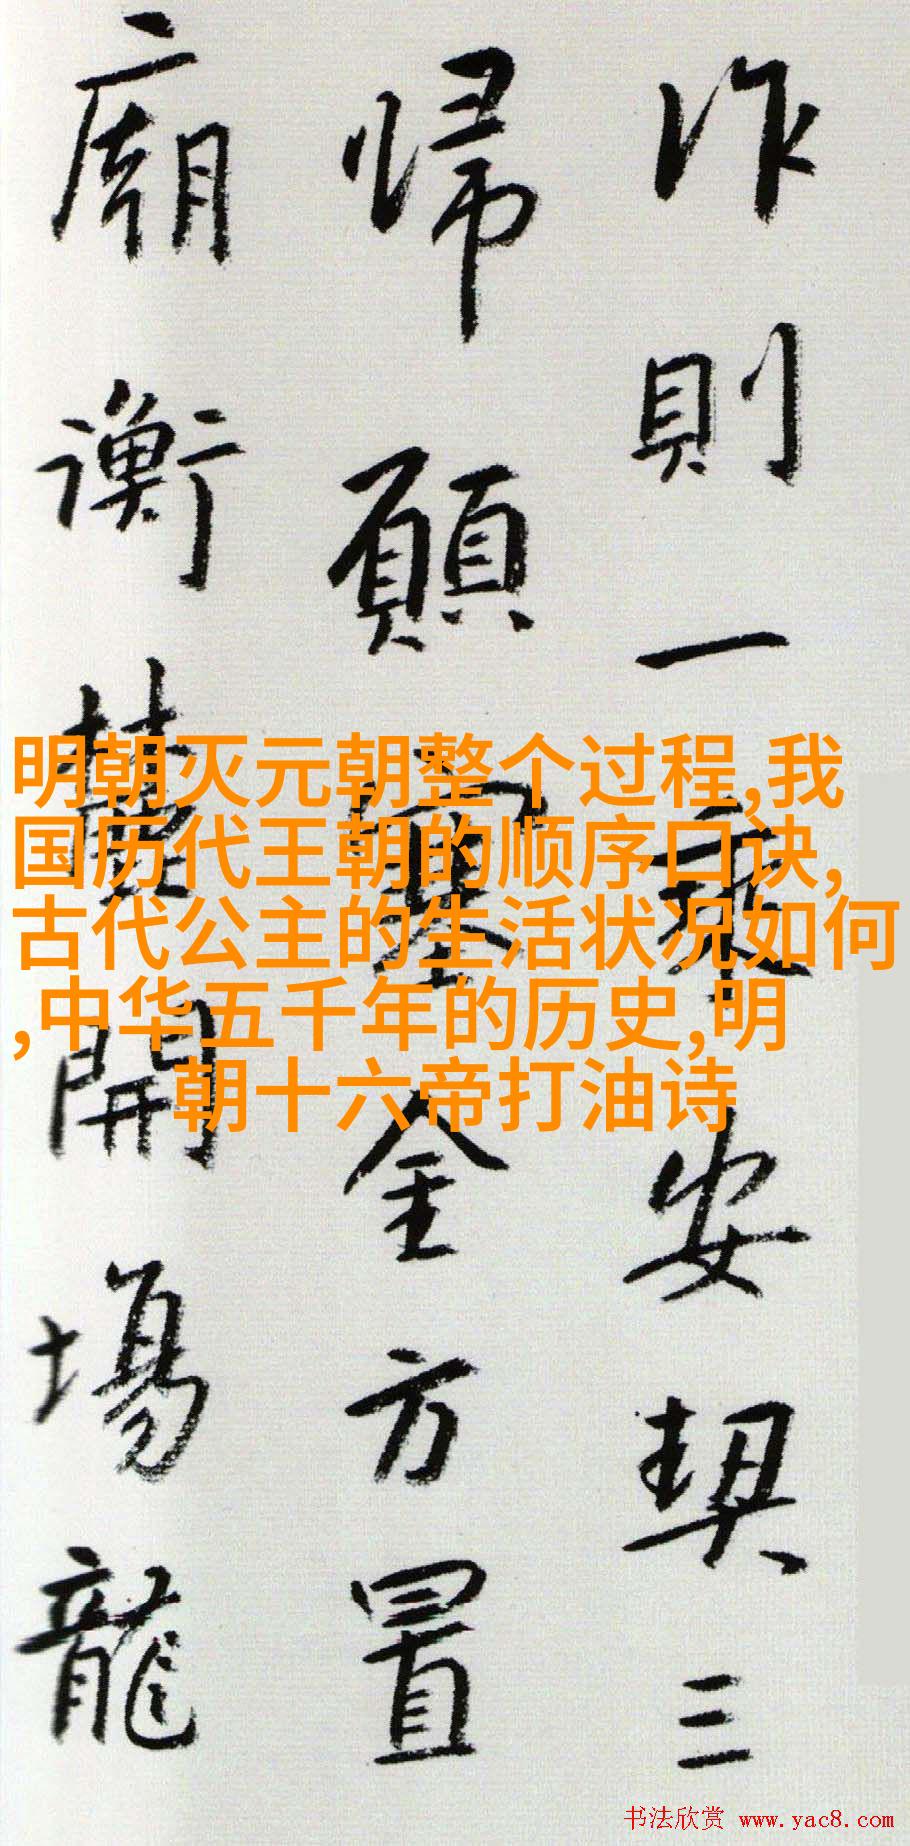 作則一乘安契三
歸願塞全方置
廟衡楚開場龍
明朝灭元朝整个过程,我
国历代王朝的顺序口诀,
古代公主的生活状况如何
,中华五千年的历史,明
朝十六帝打油诗
书法欣赏 www.yac8.com